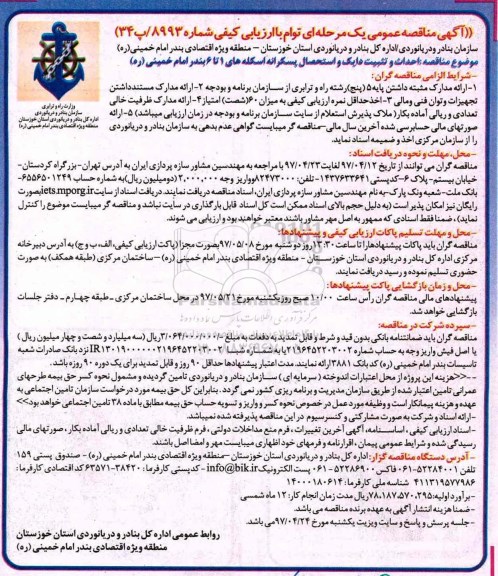 ((آگهی مناقصه عمومی یک مرحله‌ای توام با ارزیابی کیفی شماره ۸۹۹۳/پ۳۴))
سازمان بنادر و دریانوردی/اداره کل بنادر و دریانوردی استان خوزستان – منطقه ویژه اقتصادی بندر امام خمینی(ره)
موضوع مناقصه: احداث و تثبیت دایک و استحصال پسکرانه اسکله های ۱ تا ۶ بندر امام خمینی (ره)
وزارت راه و ترابری
سازمان بنادر و دریانوردی
اداره کل بنادر و دریانوردی استان خوزستان
منطقه ویژه اقتصادی بندر امام خمینی (ره)
–شرایط الزامی مناقصه گران:
۱–ارائه مدارک مثبته داشتن پایه ۵ (پنج)رشته راه و ترابری از سازمان برنامه و بودجه ۲–ارائه مدارک مستند داشتن
تجهیزات و توان فنی و مالی ۳–اخذ حداقل نمره ارزیابی کیفی به میزان ۶۰(شصت) امتیاز ۴–ارائه مدارک ظرفیت خالی
تعدادی و ریالی آماده بکار( ملاک پذیرش استعلام از سایت سازمان برنامه و بودجه در زمان ارزیابی میباشد) ۵–ارائه
صورتهای مالی حسابرسی شده آخرین سال مالی–مناقصه گر میبایست گواهی عدم بدهی به سازمان بنادر و دریانوردی
را از سازمان مرکزی اخذ و ضمیمه اسناد نماید.
–محل، مهلت و نحوه دریافت اسناد:
مناقصه گران می توانند از تاریخ ۹۷/۰۴/۱۲ لغایت ۹۷/۰۴/۲۳ با مراجعه به مهندسین مشاور سازه پردازی ایران به آدرس تهران–بزرگراه کردستان–
خیابان بیستم–پلاک ۶–کدپستی ۱۴۳۷۶۳۳۶۴۱–تلفن: ۸۲۴۷۳۰۰۰ و واریز وجه ۲,۰۰۰,۰۰۰ (دو میلیون ریال)به شماره حساب ۶۵۵۶۵۰۱۲۴۹–
بانک ملت–شعبه ونک پارک–به نام مهندسین مشاور سازه پردازی ایران، اسناد مناقصه دریافت نمایند. دریافت اسناد از سایت iets.mporg.ir بصورت
رایگان نیز امکان پذیر است (به دلیل حجم بالای اسناد ممکن است کل اسناد قابل بارگذاری در سایت نباشد و مناقصه گر میبایست موضوع را کنترل
نماید)، ضمنا فقط اسنادی که ممهور به اصل مهر مشاور باشند معتبر خواهند بود و ارزیابی می شوند.
–محل و مهلت تسلیم پاکات ارزیابی کیفی و پیشنهادها:
مناقصه گران باید پاکات پیشنهادها را تا ساعت ۱۳:۳۰ روز دو شنبه مورخ ۹۷/۰۵/۰۸ بصورت مجزا (پاکت ارزیابی کیفی،الف،ب و ج) به آدرس دبیرخانه
مرکزی اداره کل بنادر و دریانوردی استان خوزستان – منطقه ویژه اقتصادی بندر امام خمینی (ره) –ساختمان مرکزی (طبقه همکف) به صورت
حضوری تسلیم نموده و رسید دریافت نمایند.
–محل و زمان بازگشایی پاکت پیشنهادها:
پیشنهادهای مالی مناقصه گران رأس ساعت ۱۰/۰۰ صبح روز یکشنبه مورخ ۹۷/۰۵/۲۱ در محل ساختمان مرکزی –طبقه چهارم– دفتر جلسات
بازگشایی خواهد شد.
–سپرده شرکت در مناقصه:
مناقصه گران باید ضمانتنامه بانکی بدون قید و شرط و قابل تمدید به دفعات به مبلغ ۳/۰۶۴/۰۰۰/۰۰۰ریال (سه میلیارد و شصت و چهار میلیون ریال )
یا اصل فیش واریز وجه به حساب شماره ۲۱۹۶۴۵۲۲۰۳۰۰۲ یا به شماره شبا IR۱۳۰۱۹۰۰۰۰۰۰۰۲۱۹۶۴۵۲۲۰۳۰۰۲ نزد بانک صادرات شعبه
تاسیسات بندر امام خمینی (ره) کد بانک ۳۸۸۱ ارائه نمایند. مدت اعتبار پیشنهادها حداقل ۹۰ روز و قابل تمدید برای یک دوره ۹۰ روزه باشد.
–<<هزینه این پروژه از محل اعتبارات اندوخته ( سرمایه ای ) سازمان بنادر و دریانوردی تامین گردیده و مشمول نحوه کسر حق بیمه طرحهای
عمرانی تامین اعتبار شده از طریق سازمان مدیریت و برنامه ریزی کشور نمی گردد . بنابراین کل حق بیمه مورد درخواست سازمان تامین اجتماعی به
عهده و هزینه پیمانکار است و وظیفه مورد عمل در خصوص نحوه کسر و واریز و تسویه حساب حق بیمه مطابق با ماده ۳۸ تامین اجتماعی خواهد بود>>
–ارائه اسناد و شرکت به صورت مشارکتی و کنسرسیوم در این مناقصه پذیرفته شده نمیباشد.
–اسناد ارزیابی کیفی ، اساسنامه، آگهی آخرین تغییرات ، فرم منع مداخلات دولتی ، فرم ظرفیت خالی تعدادی و ریالی آماده بکار ، صورتهای مالی
رسیدگی شده و شرایط عمومی پیمان ، اقرارنامه و فرمهای خود اظهاری میبایست مهر و امضا اصل باشند.
–آدرس دستگاه مناقصه گزار: اداره کل بنادر و دریانوردی استان خوزستان –منطقه ویژه اقتصادی بندر امام خمینی (ره) – صندوق پستی ۱۵۹
تلفن ۵۲۲۸۴۰۰۱-۰۶۱ فاکس ۵۲۲۸۶۹۰۰-۰۶۱ پست الکترونیک info@bik.ir - کدپستی کارفرما: ۳۸۴۲۰-۶۳۵۷۱ کد اقتصادی کارفرما:
۴۱۱۳۱۹۵۷۷۹۸۶ شناسه ملی کارفرما: ۱۴۰۰۰۱۸۰۶۱۴
–برآورد اولیه:۷۸,۱۸۷,۵۷۰,۲۹۵ریال مدت زمان انجام کار: ۱۲ ماه شمسی
–ضمنا هزینه انتشار آگهی به عهده برنده مناقصه می باشد.
–جلسه پرسش و پاسخ و سایت ویزیت یکشنبه مورخ ۹۷/۰۴/۲۴ می باشد.
روابط عمومی اداره کل بنادر و دریانوردی استان خوزستان
منطقه ویژه اقتصادی بندر امام خمینی (ره)